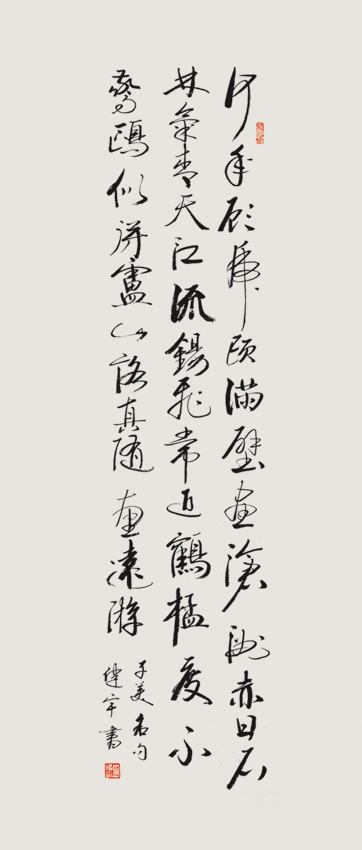 何年顧虎頭滿壁畫滄洲赤日石
林氣青天江流錫飛常近鶴杯度不
驚鷗似得盧山路真隨惠遠游
子美名句
書